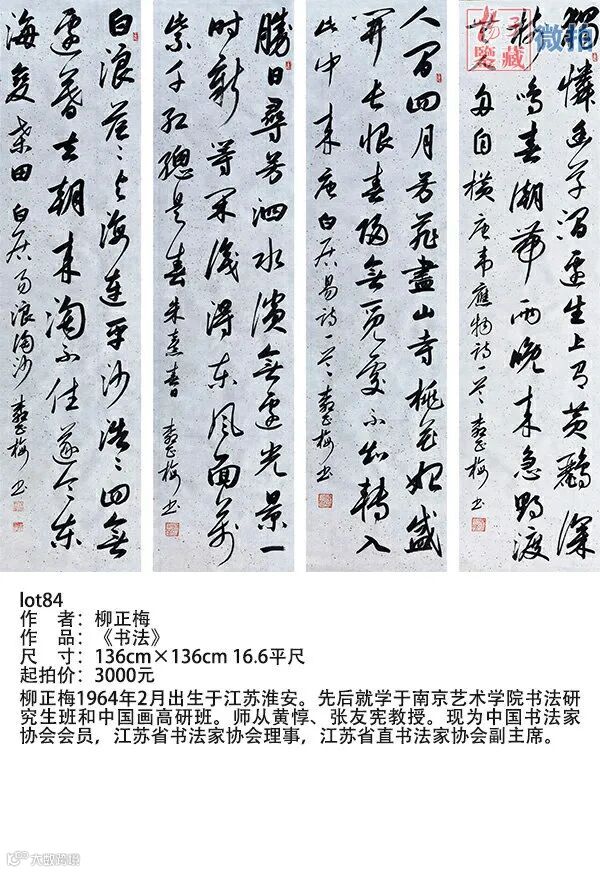 獨憐幽草澗邊生上有黃鸝深
樹鳴春潮帶雨晚来急野渡
無人舟自橫唐韋應物詩一首柳正梅书
人间四月芳菲盡山寺桃花始盛
開长恨春歸無覓處不知轉入
此中来唐白居易詩一首柳正梅书
勝日尋芳泗水濱無邊光景一
時新等闲識得东風面萬
紫千红總是春朱熹春日柳正梅书
白浪茫茫與海連平沙浩浩四無
邊暮去朝来淘不住遂令东
海變桑田白居易浪淘沙柳正梅书
鑒藏
微拍
lot84
作　者：柳正梅
作　品：《书法》
尺　寸：136cm×136cm 16.6平尺
起拍价：3000元
柳正梅1964年2月出生于江苏淮安。先后就学于南京艺术学院书法研
究生班和中国画高研班。师从黄惇、张友宪教授。现为中国书法家
协会会员，江苏省书法家协会理事，江苏省直书法家协会副主席。
大数跨境